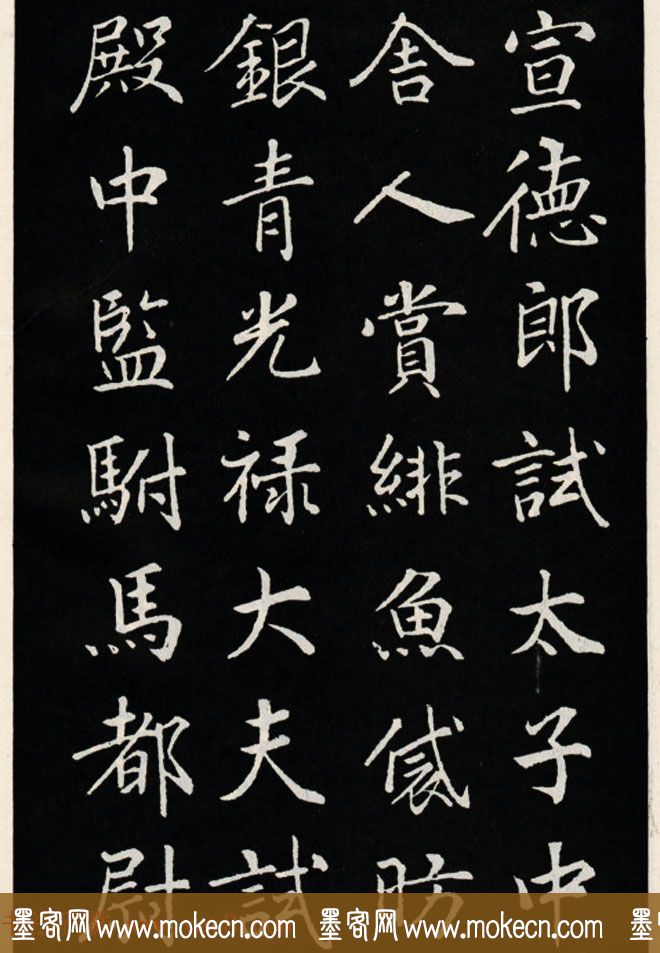 宣德郎試太子中
舍人賞緋魚袋昉
銀青光禄大夫試
殿中監駙馬都尉
墨客网 www.mokecn.com 墨客网 www.mokecn.com 墨